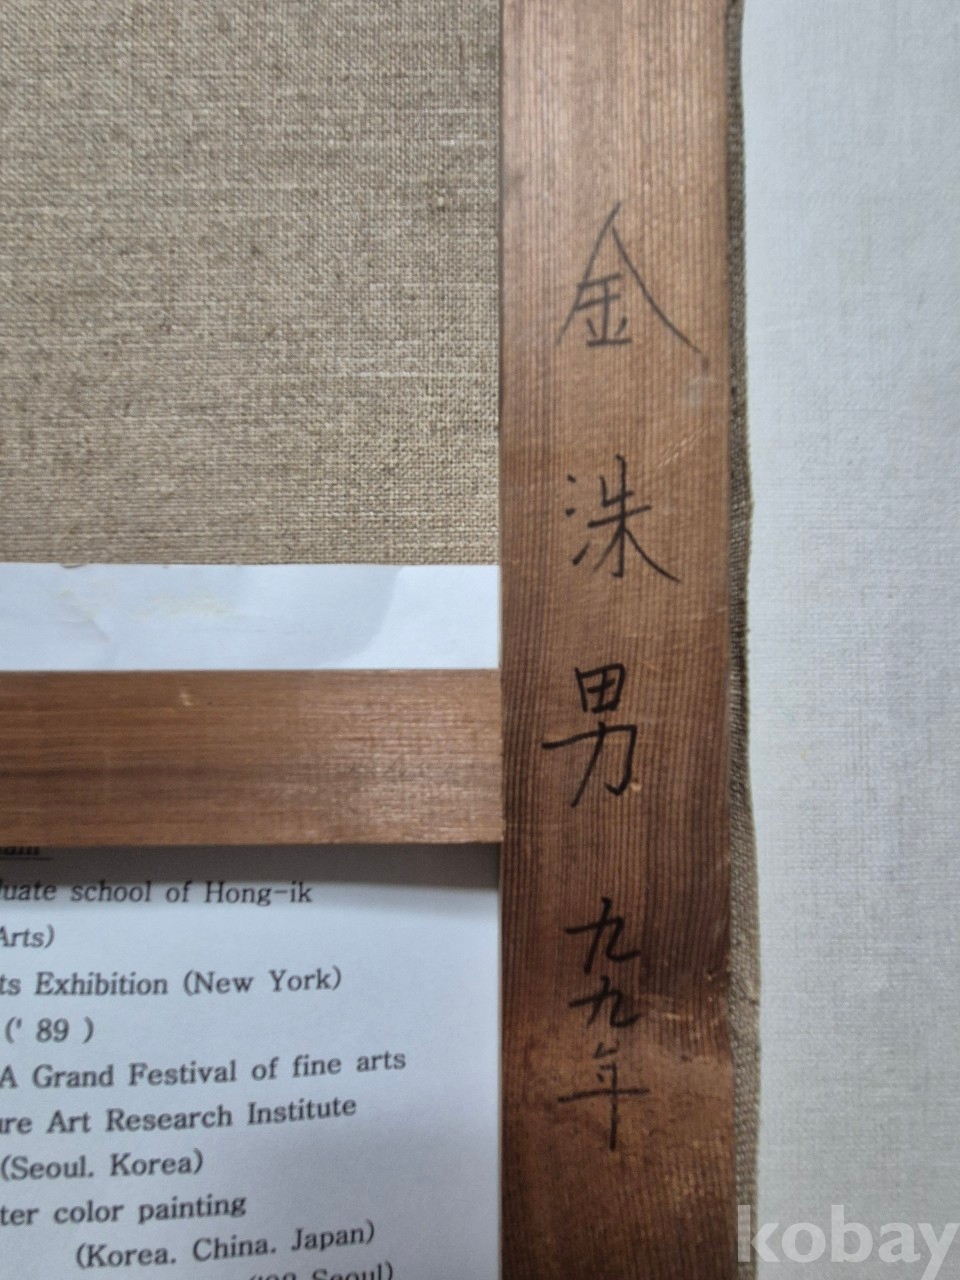 金
洙
男
九
九
年
uate school of Hong-ik
Arts)
ts Exhibition (New York)
(' 89 )
A Grand Festival of fine arts
ure Art Research Institute
(Seoul. Korea)
ter color painting
(Korea. China. Japan)
Seoul)
kobay